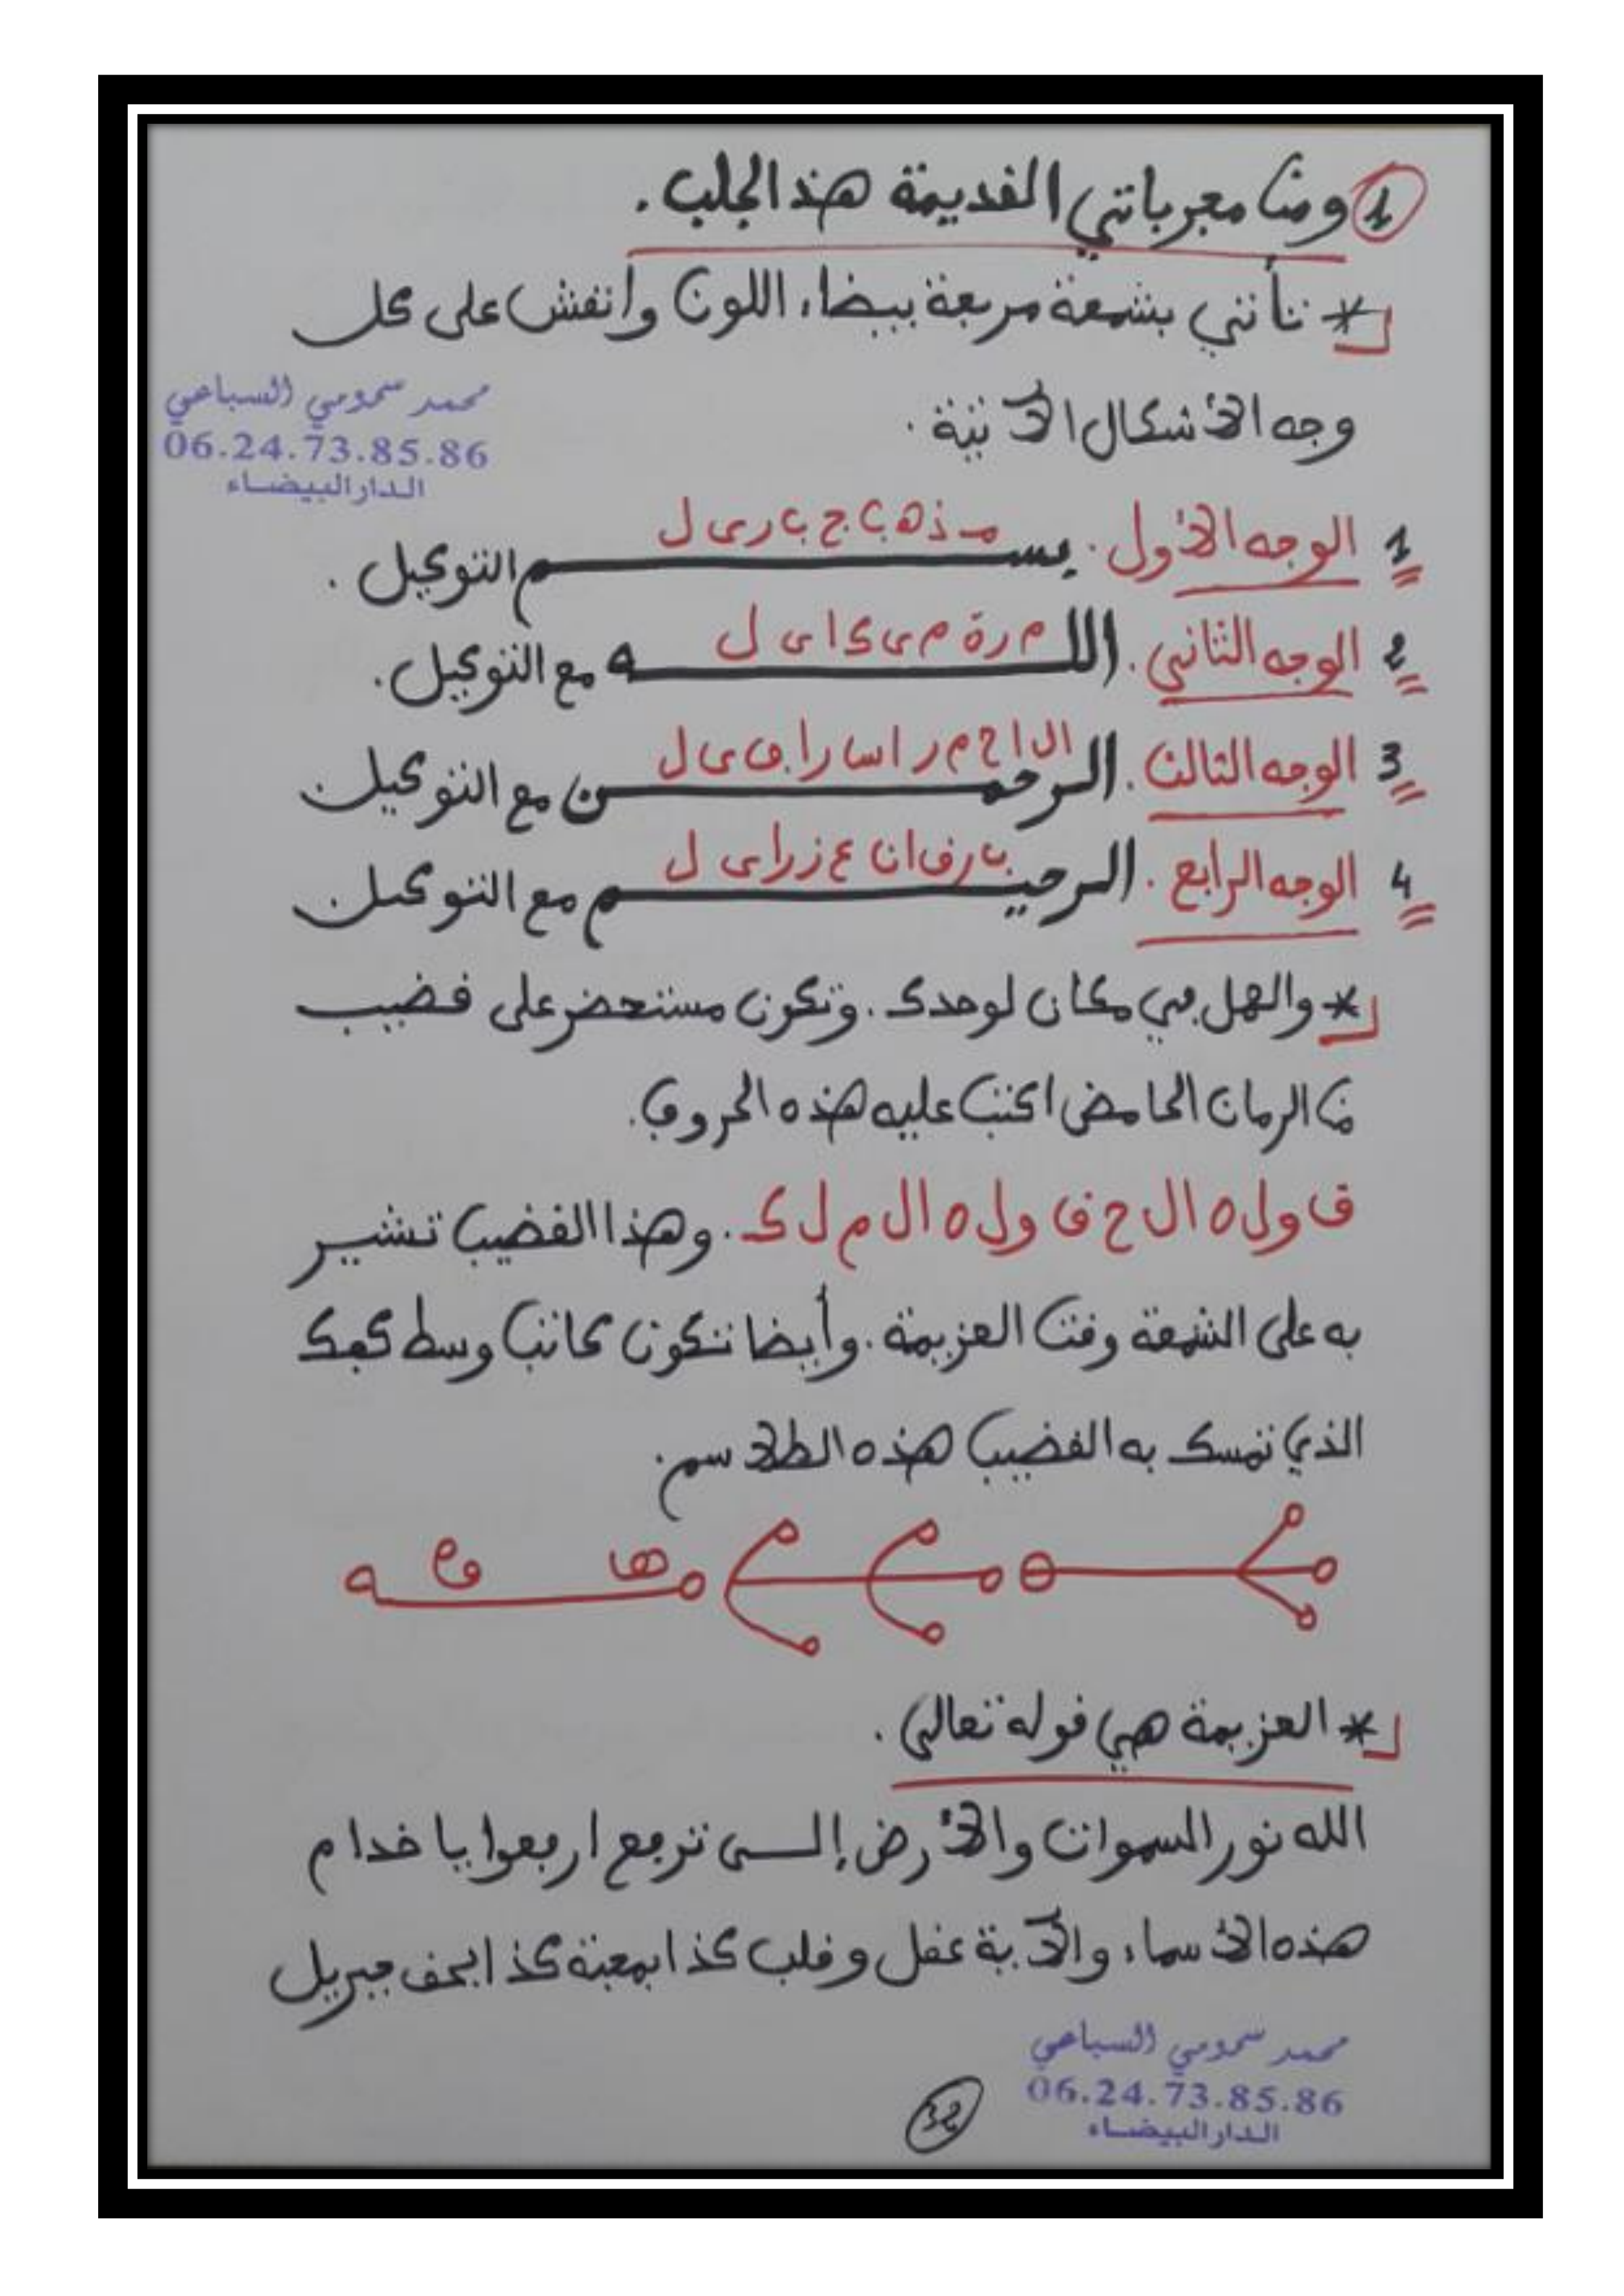 1 ومن مجرباتي القديمة هذ الجلب.
* تأتي بشمعة مربعة بيضاء اللون وانقش على كل
محمد سمومي السباعي
06.24.73.85.86
الدار البيضاء
وجه الأشكال الآتية.
1 الوجه الأول. بسم التوكيل.
مذهب ج ب ر ى ل
2 الوجه الثاني. الله مع التوكيل.
م ر ة م ى ك ا ى ل
3 الوجه الثالث. الرحمن مع التوكيل
ا ل ا ح م ر ا س ر ا ف ى ل
4 الوجه الرابع. الرحيم مع التوكيل
ب ر ق ا ن ع ز ر ا ى ل
* والعمل في مكان لوحدك. وتكون مستحضر على قضيب
من الرمان الحامض اكتب عليه هذه الحروف.
ق و ل ه ا ل ح ق و ل ه ا ل م ل ك. وهذا القضيب تشير
به على الشمعة وقت العزيمة. وأيضا تكون كاتب وسط كفك
الذي تمسك به القضيب هذه الطلاسم.
* العزيمة هي قوله تعالى.
الله نور السموات والأرض إلى ترفع ارفعوا يا خدام
هذه الأسماء والآية عقل وقلب كذا بمحبة كذا بحق جبريل
محمد سمومي السباعي
06.24.73.85.86
الدار البيضاء
32